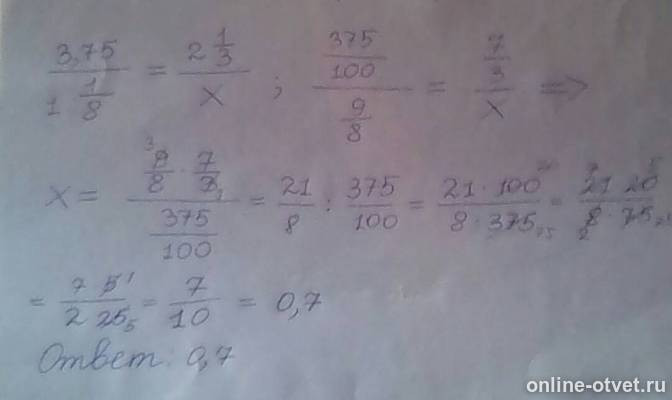 3,75 / 1 1/8 = 2 1/3 / x ; 375/100 / 9/8 = 7/3 / x =>
x = 9/8 · 7/3 / 375/100 = 21/8 : 375/100 = 21 · 100 / 8 · 375 = 21 · 20 / 8 · 75
= 7 5 / 2 25 = 7/10 = 0,7
Ответ: 0,7
online-otvet.ru